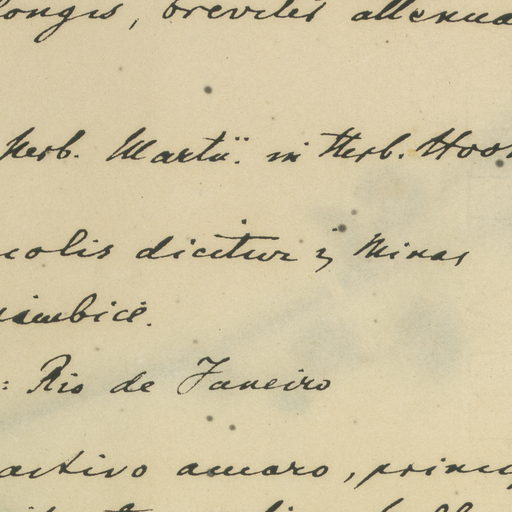 longis, breviter attenua
Herb. Martii. in Herb. Hook
colis dicitur Minas
: Rio de Janeiro
activo amaro, princi